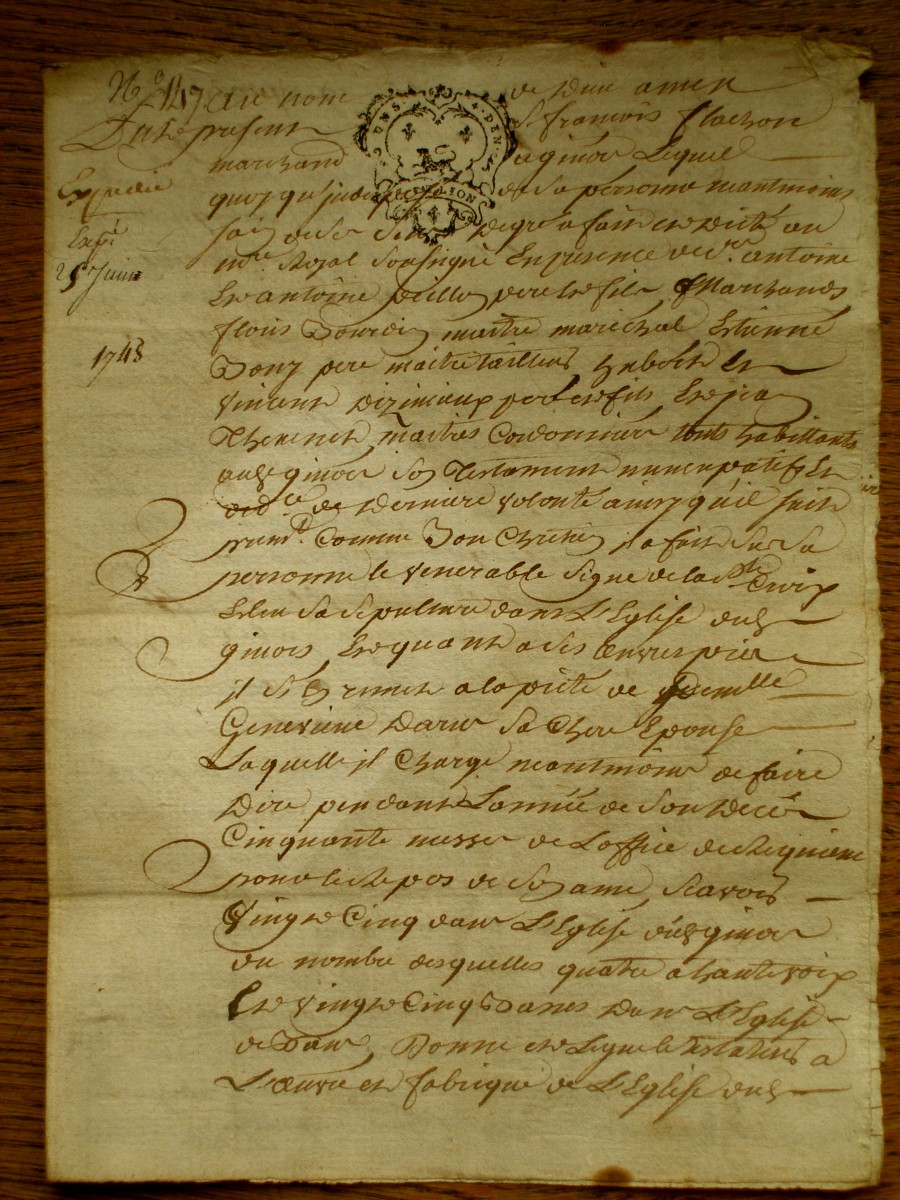 N.o 147 Au nom de Dieu amen
Fut present Sr françois flachon
marchand a ginois Lequel
quoy qu'indisposé de sa personne neantmoins
sain de ses sens de gré a fait et Dicté au
nore Royal soussigné En presence de sr antoine
Et antoine pere et fils Marchands
floris Bourdin maitre marechal Estienne
Bony pere maitre tailleurs habits et
vincent pere et fils Et
Thevenet maitres Cordonnier touts habittants
audt ginois son Testament nuncupatif et
ordce de Derniere volonté ainsy qu'il suit
premt Comme Bon Chretien a fait sur sa
personne le venerable signe de la Ste Croix
Esleu sa sepulture dans L'Eglise dudt
ginois Et quant a ses œuvres pies
il s'En remet a la pieté de Demlle
Genevieve sa Chere Epouse
Laquelle il Charge neantmoins de faire
Dire pendant L'année de son decès
Cinquante messes de L'office de Requiem
pour le Repos de son ame sçavoir
Vingt Cinq dans L'Eglise dudt ginois
du nombre desquelles quatre a haute voix
Et vingt Cinq dans L'Eglise
de Donne et Legue le testateur a
L'œuvre et fabrique de L'Eglise dudt
Expedié
Expé
25 Juin
1743
GEN. DE LYON